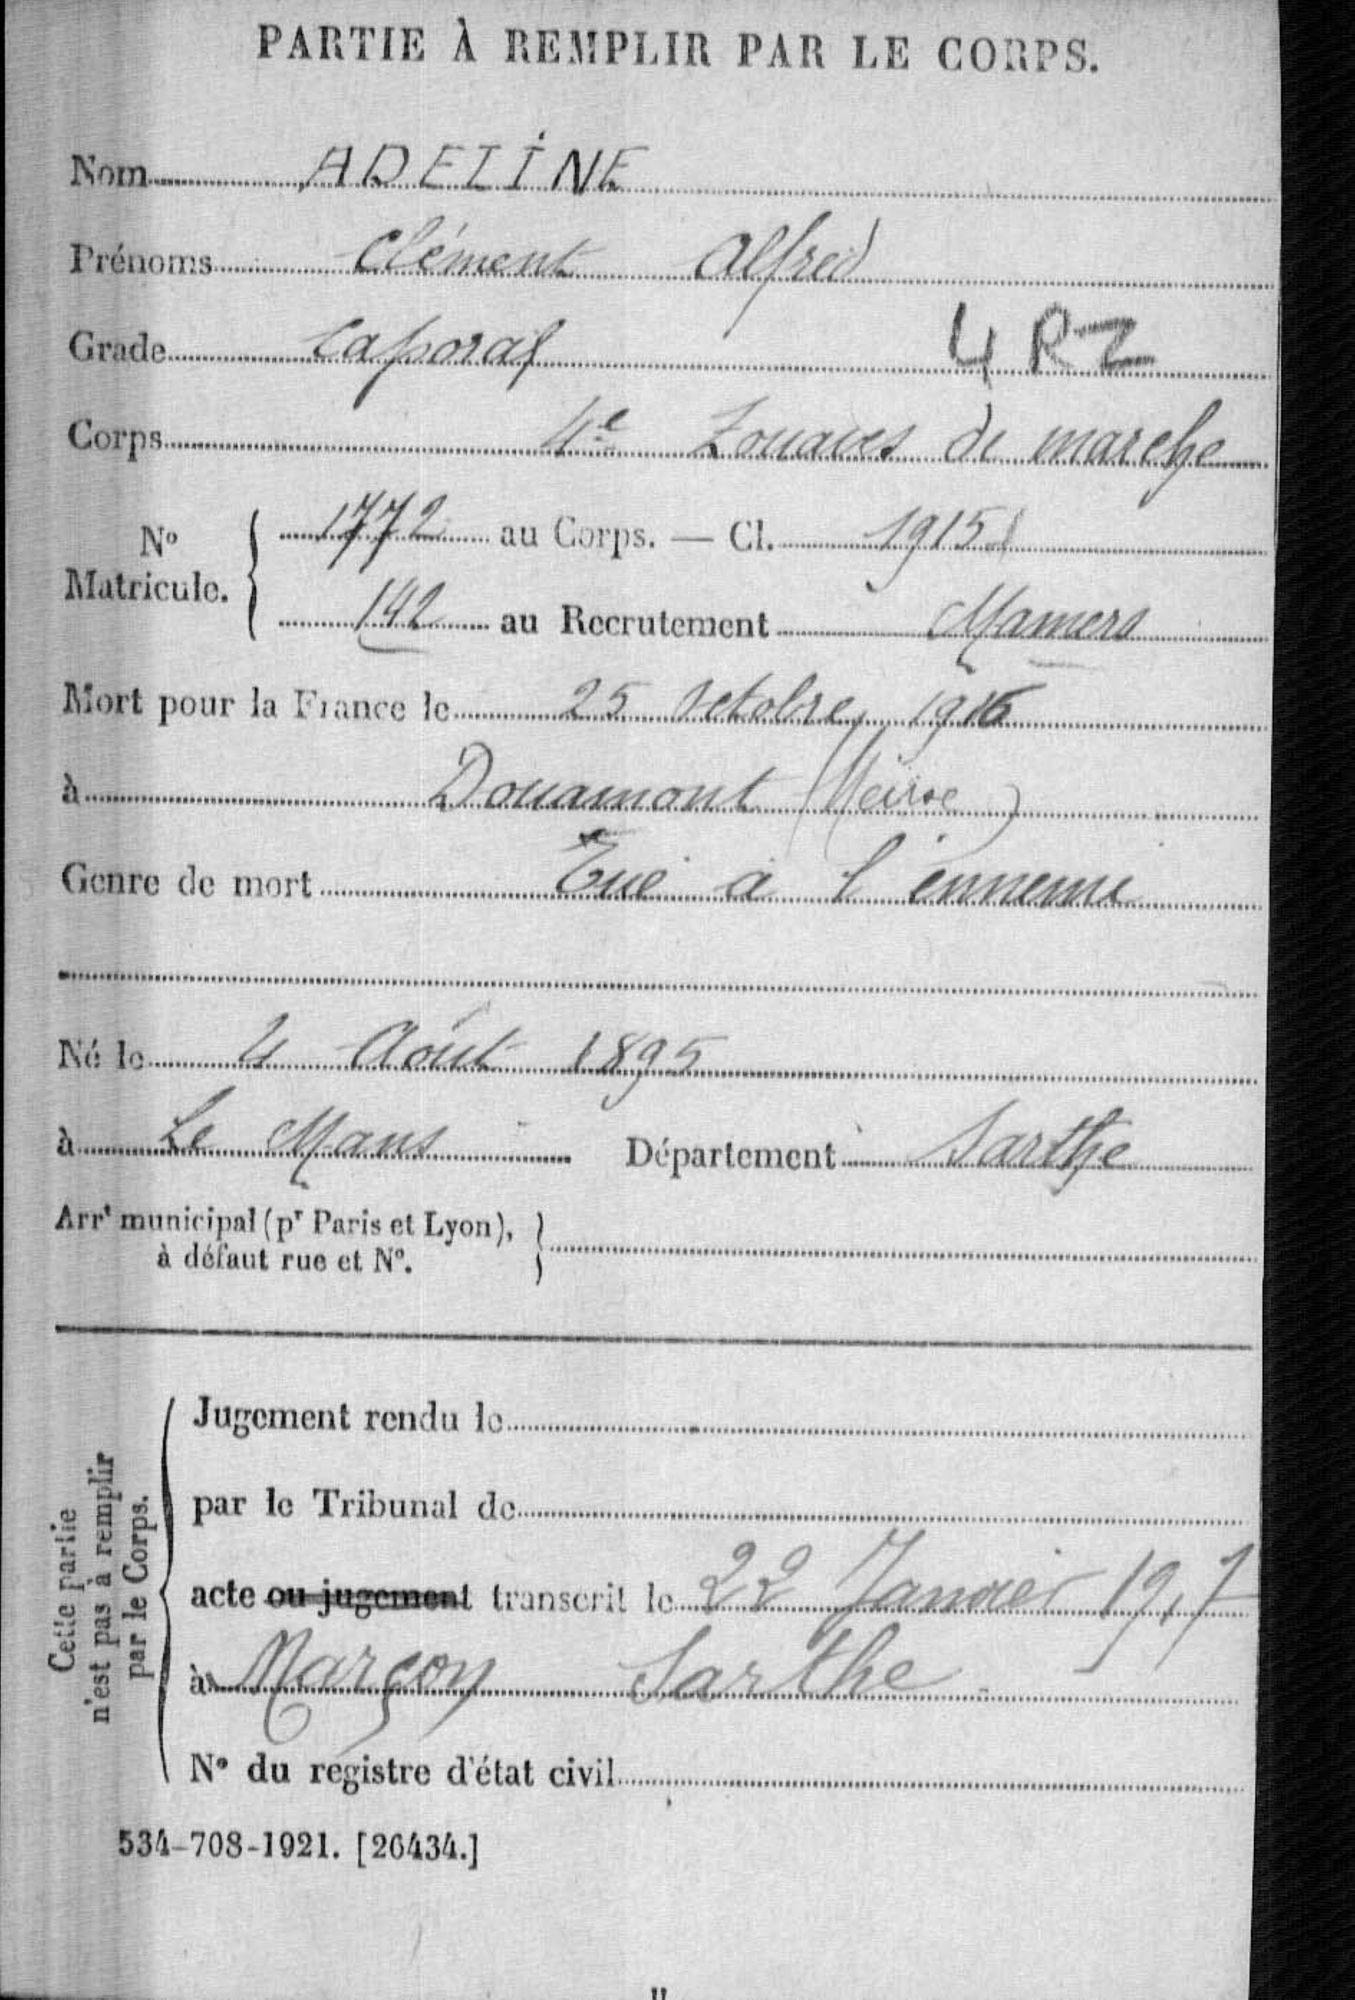 PARTIE À REMPLIR PAR LE CORPS.
Nom ADELINE
Prénoms Clément Alfred
Grade Caporal
4 RZ
Corps 4e Zouaves de marche
No Matricule. { 1772 au Corps. — Cl. 1915
142 au Recrutement Mamers
Mort pour la France le 25 Octobre 1916
à Douamont (Meuse)
Genre de mort Tué à l'ennemi
Né le 4 Août 1895
à Le Mans Département Sarthe
Arrt municipal (pr Paris et Lyon), }
à défaut rue et No.
Cette partie
n'est pas à remplir
par le Corps.
Jugement rendu le
par le Tribunal de
acte ou jugement transcrit le 22 Janvier 1917
à Marçon Sarthe
No du registre d'état civil
534-708-1921. [26434.]